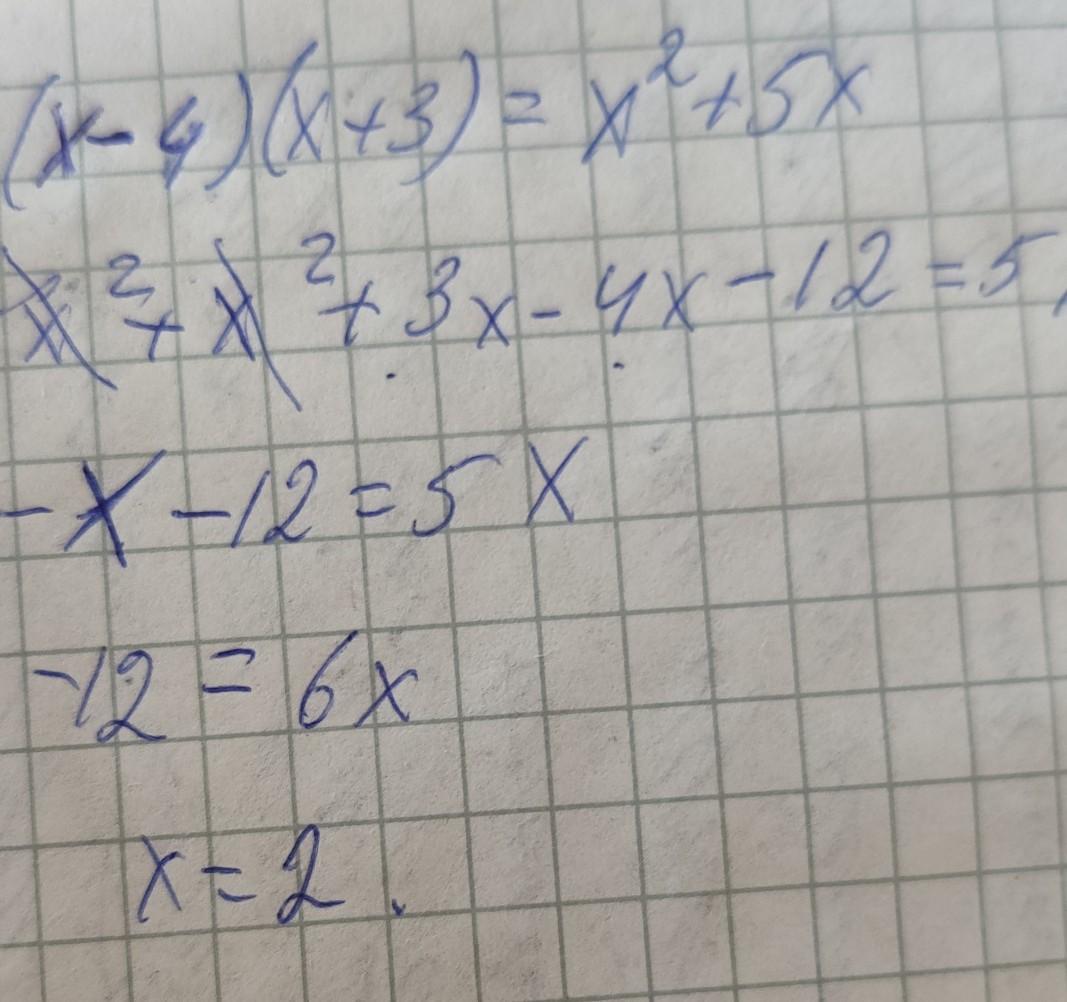 (x-4)(x+3)=x²+5x
x²+x²+3x-4x-12=5
-x-12=5x
-12=6x
x=2.